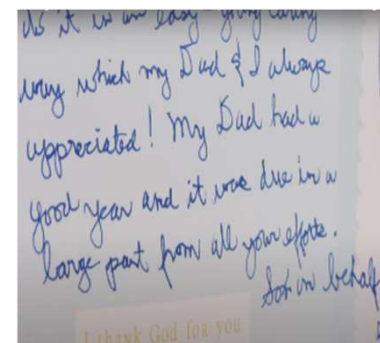 do it in an easy-going caring
way which my Dad & I always
appreciated! My Dad had a
good year and it was due in a
large part from all your efforts.
So in behalf
I thank God for you